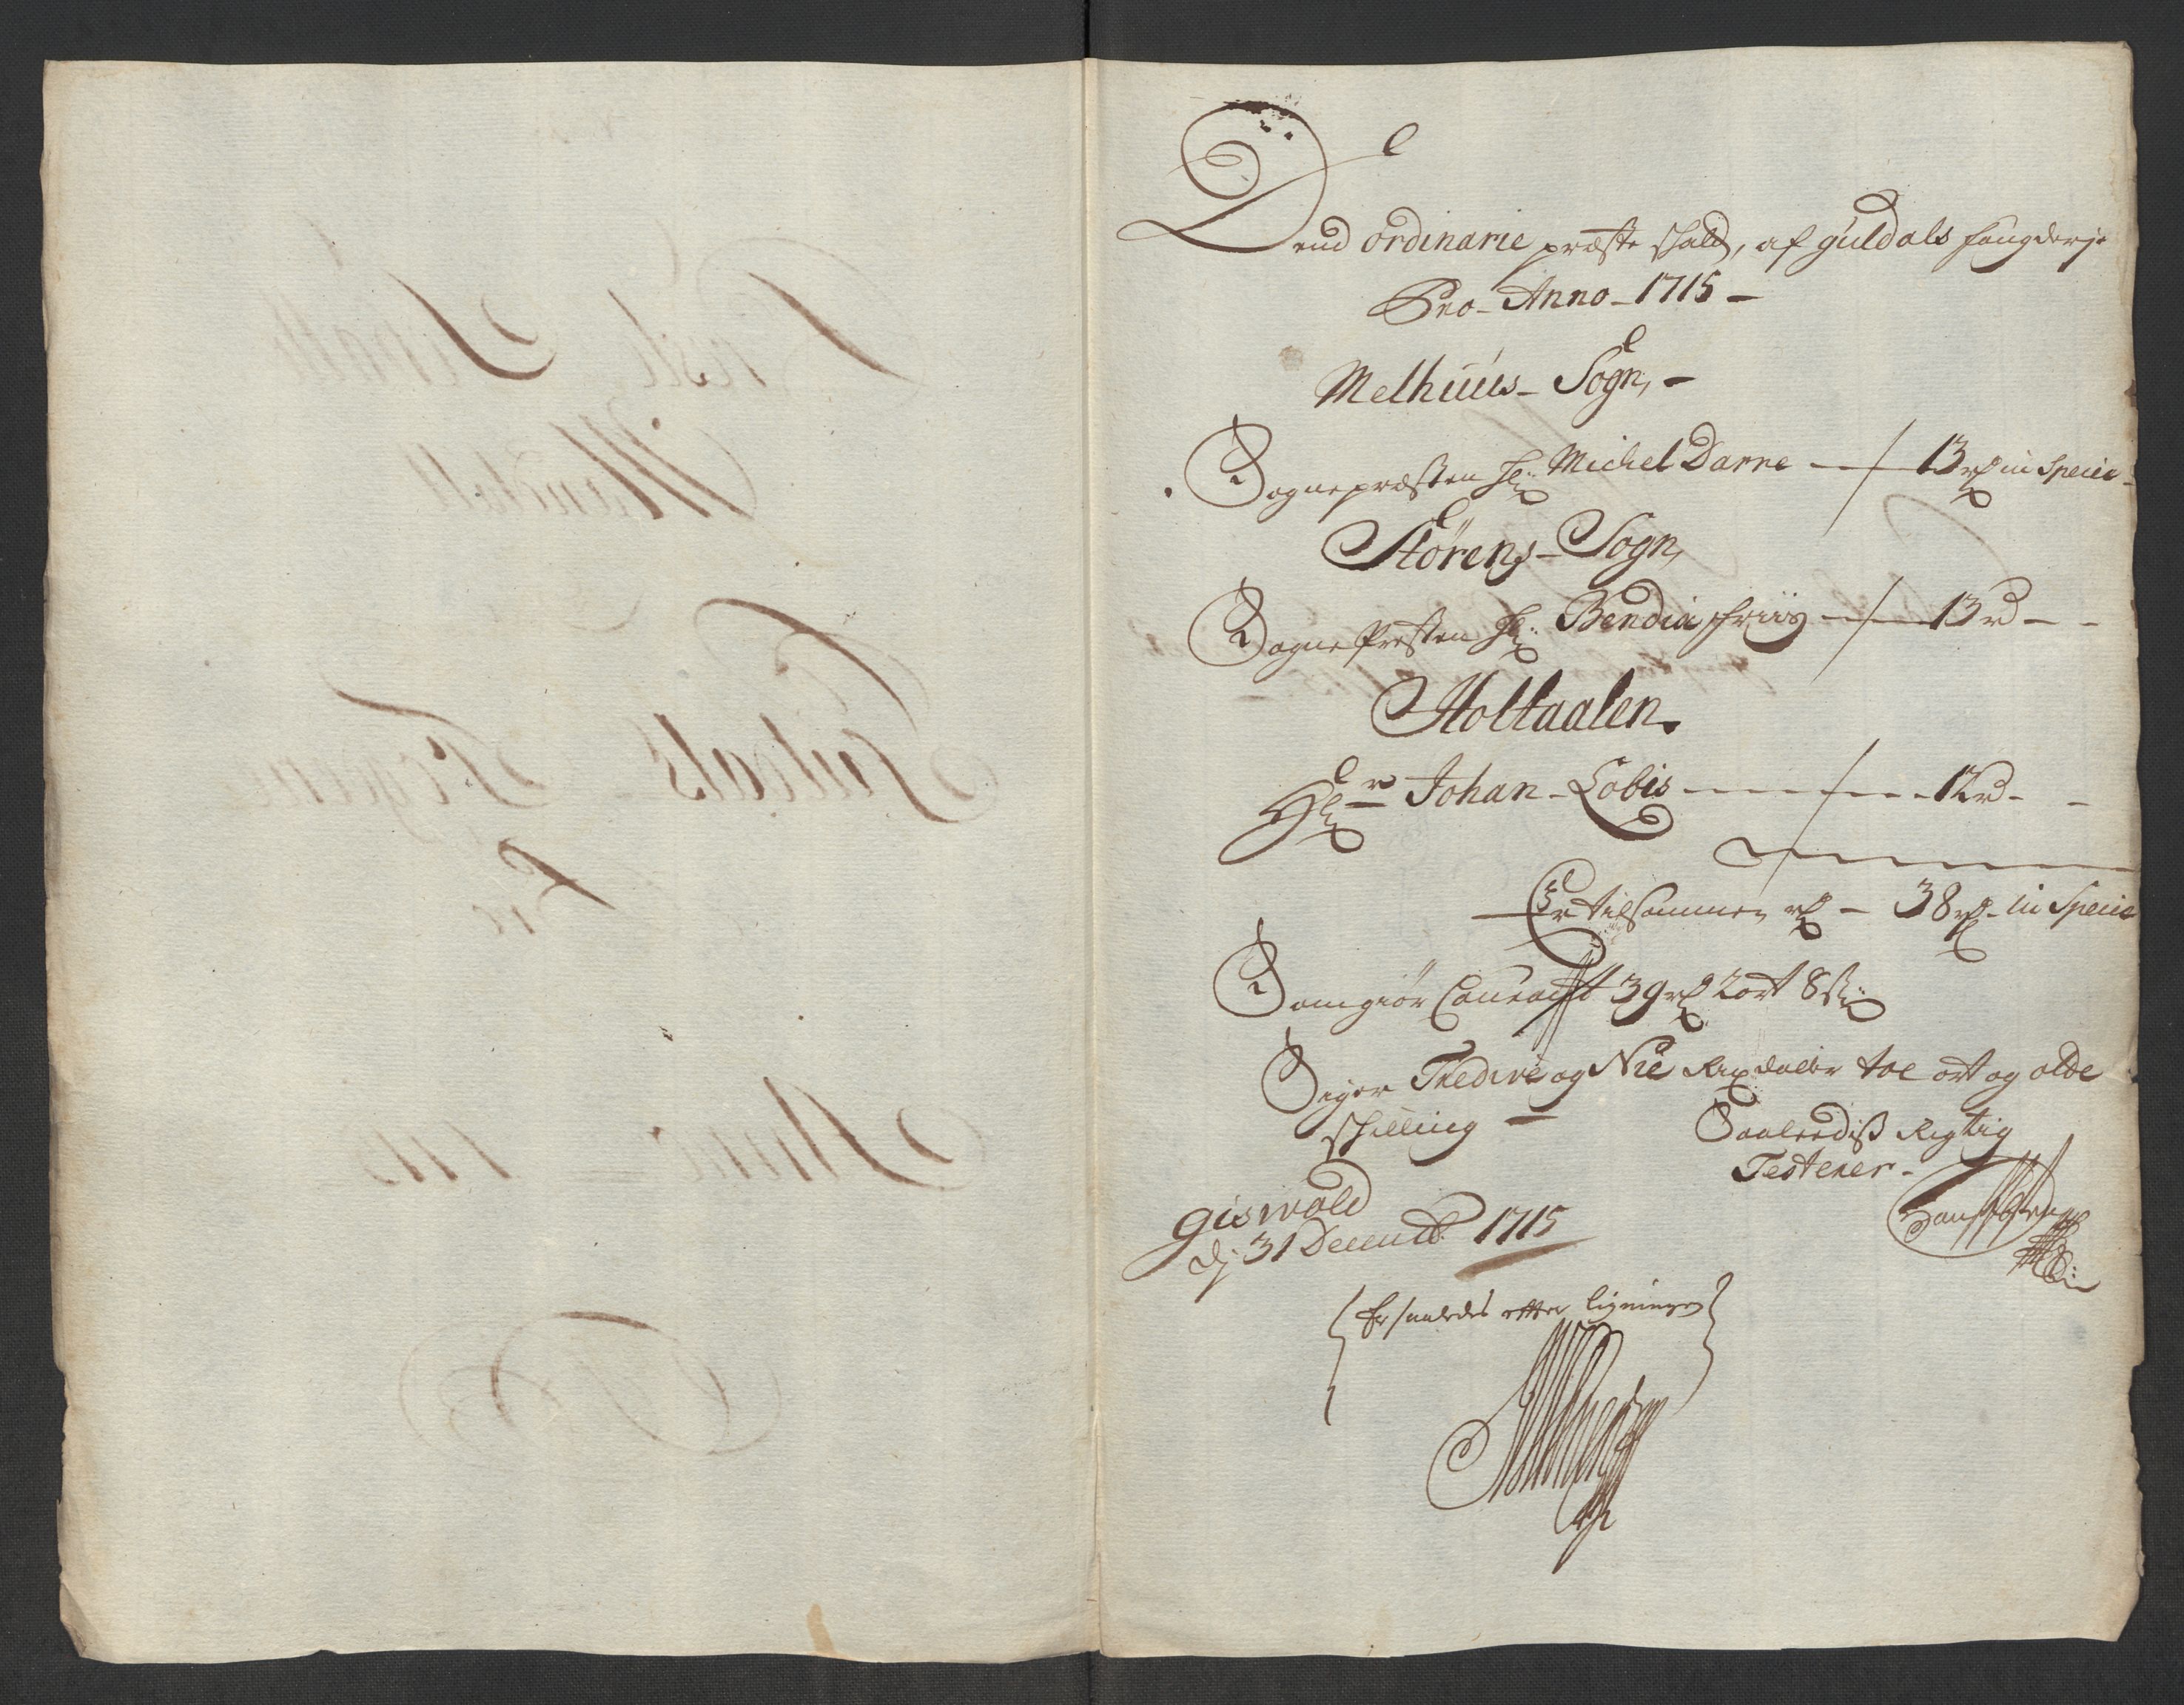 Dend ordinarie præste schatt, af Guldals fougderje
Pro Anno 1715
Melhuus Sogn,
Sognepræsten Hr: Michel Darre 13 rd in Specie
Størens Sogn,
Sogne Presten Hr: Bendix Friis 13 rd
Holtaalen.
Hr Johan Lobis 12 rd
Er tilsammen rd 38 rd in Specie
Som giør Courant 39 rd 2 ort 8 s:
Siger Tredive og Nie Rixdaler toe ort og otte
schilling
Saaledis Rigtig
Testerer
Giswold
dj 31 Decemb: 1715
Er saaledes efter ligningen